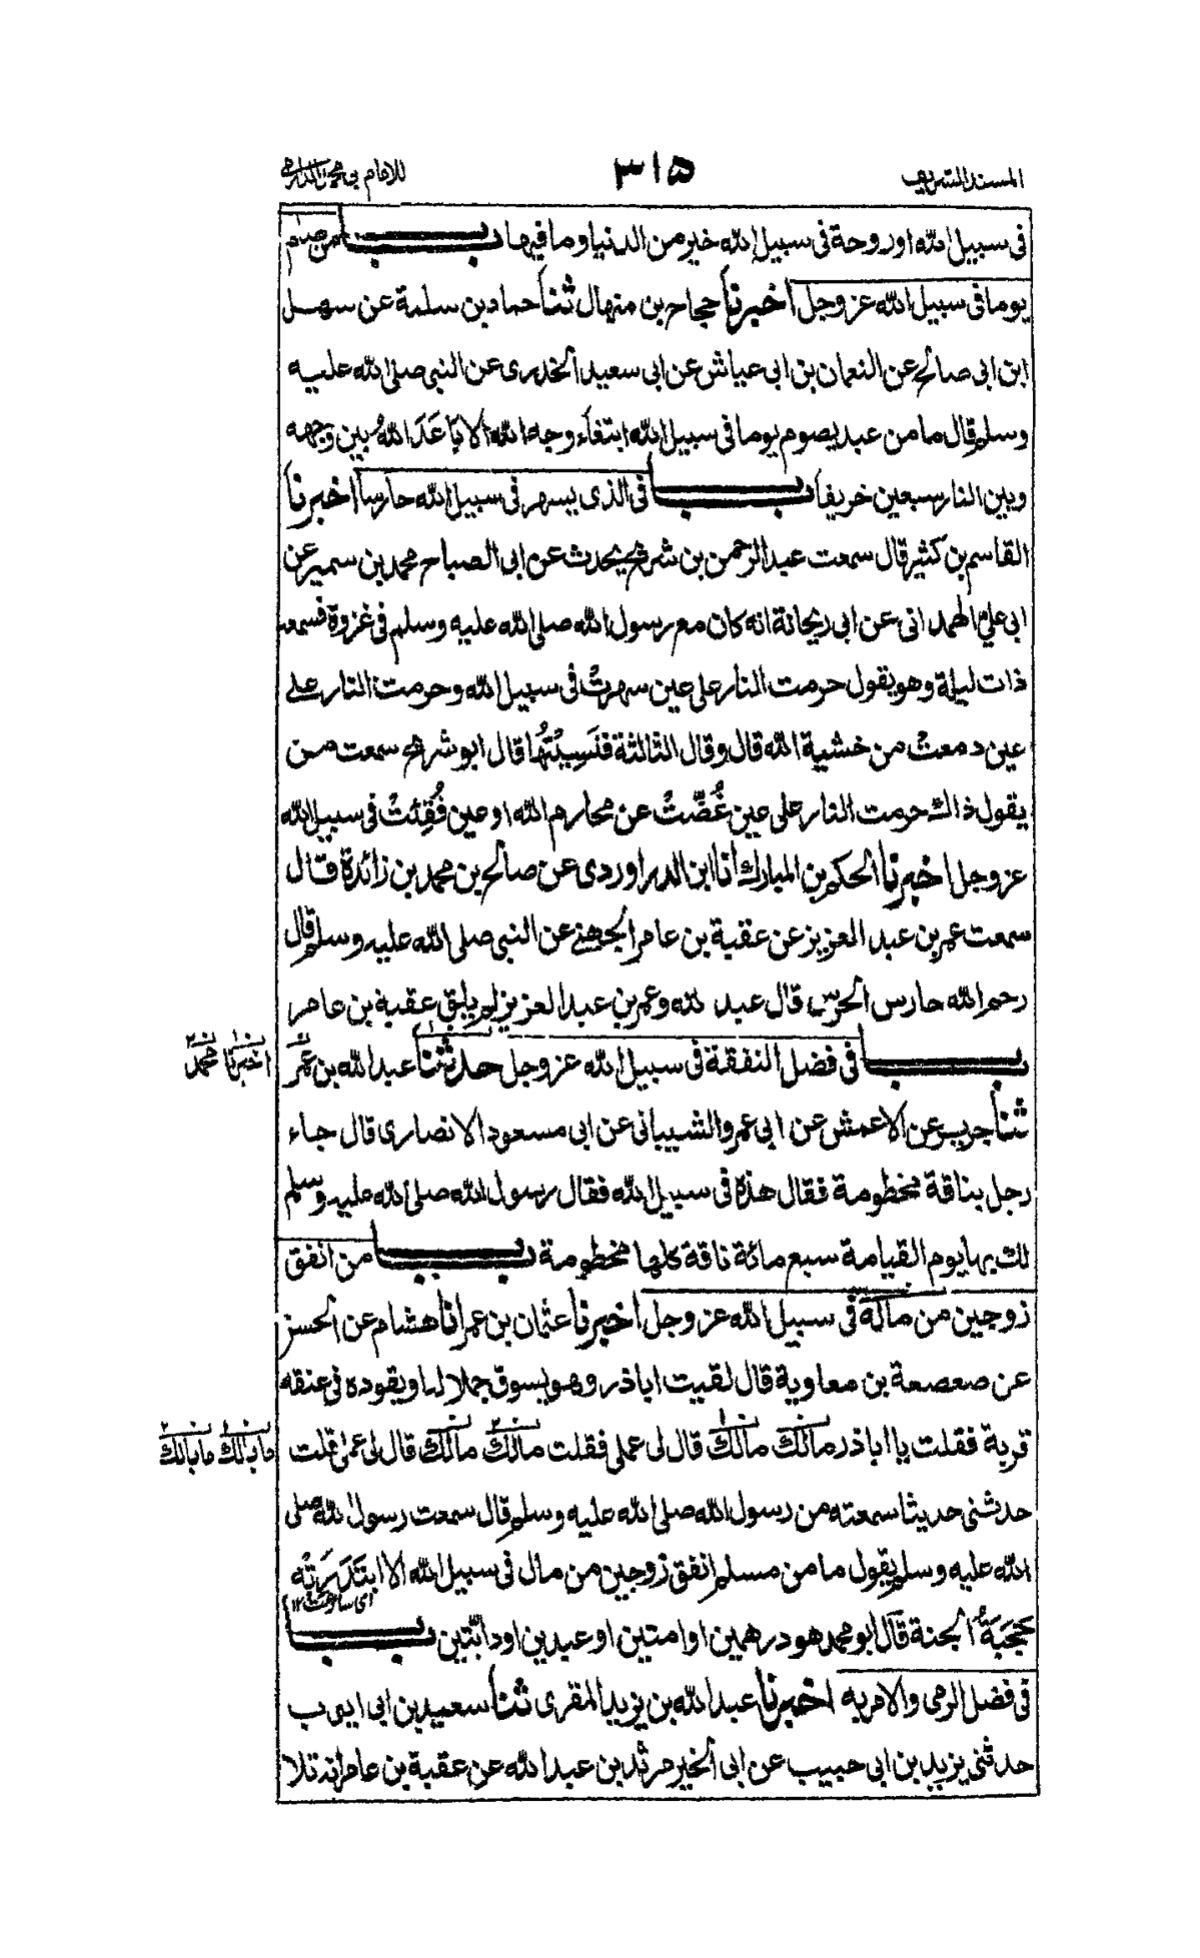 المسند الشريف
٣١٥
للامام ابی محمد الدارمی
فی سبیل الله او روحة فی سبیل الله خیر من الدنیا وما فیها باب من صام
یوما فی سبیل الله عز وجل اخبرنا حجاج بن منهال ثنا حماد بن سلمة عن سهیل
ابن ابی صالح عن النعمان بن ابی عیاش عن ابی سعید الخدری عن النبی صلی الله علیه
وسلم قال ما من عبد یصوم یوما فی سبیل الله ابتغاء وجه الله الا بَاعَدَ اللهُ بین وجهه
وبین النار سبعین خریفا باب فی الذی یسهر فی سبیل الله حارسا اخبرنا
القاسم بن کثیر قال سمعت عبد الرحمن بن شریح یحدث عن ابی الصباح محمد بن سمیر عن
ابی علیّ الهمدانی عن ابی ریحانة انه کان مع رسول الله صلی الله علیه وسلم فی غزوة فسمعه
ذات لیلة وهو یقول حرمت النار علی عین سهرتْ فی سبیل الله وحرمت النار علی
عین دمعتْ من خشیة الله قال وقال الثالثة فنَسِیْتُهَا قال ابو شریح سمعت من
یقول ذاك حرمت النار علی عین غُضَّتْ عن محارم الله او عین فُقِئَتْ فی سبیل الله
عز وجل اخبرنا الحکم بن المبارك انا ابن الدراوردی عن صالح بن محمد بن زائدة قال
سمعت عمر بن عبد العزیز عن عقبة بن عامر الجهنی عن النبی صلی الله علیه وسلم قال
رحم الله حارس الحرس قال عبد الله وعمر بن عبد العزیز لم یلق عقبة بن عامر
باب فی فضل النفقة فی سبیل الله عز وجل حدثنا عبد الله بن عمر
اخبرنا محمد
ثنا جریر عن الاعمش عن ابی عمرو الشیبانی عن ابی مسعود الانصاری قال جاء
رجل بناقة مخطومة فقال هذه فی سبیل الله فقال رسول الله صلی الله علیه وسلم
لك بها یوم القیامة سبع مائة ناقة کلها مخطومة باب من انفق
زوجین من ماله فی سبیل الله عز وجل اخبرنا عثمان بن عمر انا هشام عن الحسن
عن صعصعة بن معاویة قال لقیت اباذر وهو یسوق جملا له او یقوده فی عنقه
قربة فقلت یا اباذر مالك مالك قال لی عملی فقلت مالك مالك قال لی عملی قلت
ما بالك ما بالك
حدثنی حدیثا سمعته من رسول الله صلی الله علیه وسلم قال سمعت رسول الله صلی
الله علیه وسلم یقول ما من مسلم انفق زوجین من مال فی سبیل الله الا ابتَدَرَتْه
ای سارعت ١٢
حَجَبَةُ الجنة قال ابو محمد هو درهمین او امتین او عبدین او دابّتین باب
فی فضل الرمی والامر به اخبرنا عبد الله بن یزید المقری ثنا سعید بن ابی ایوب
حدثنی یزید بن ابی حبیب عن ابی الخیر مرثد بن عبد الله عن عقبة بن عامر انه تلا